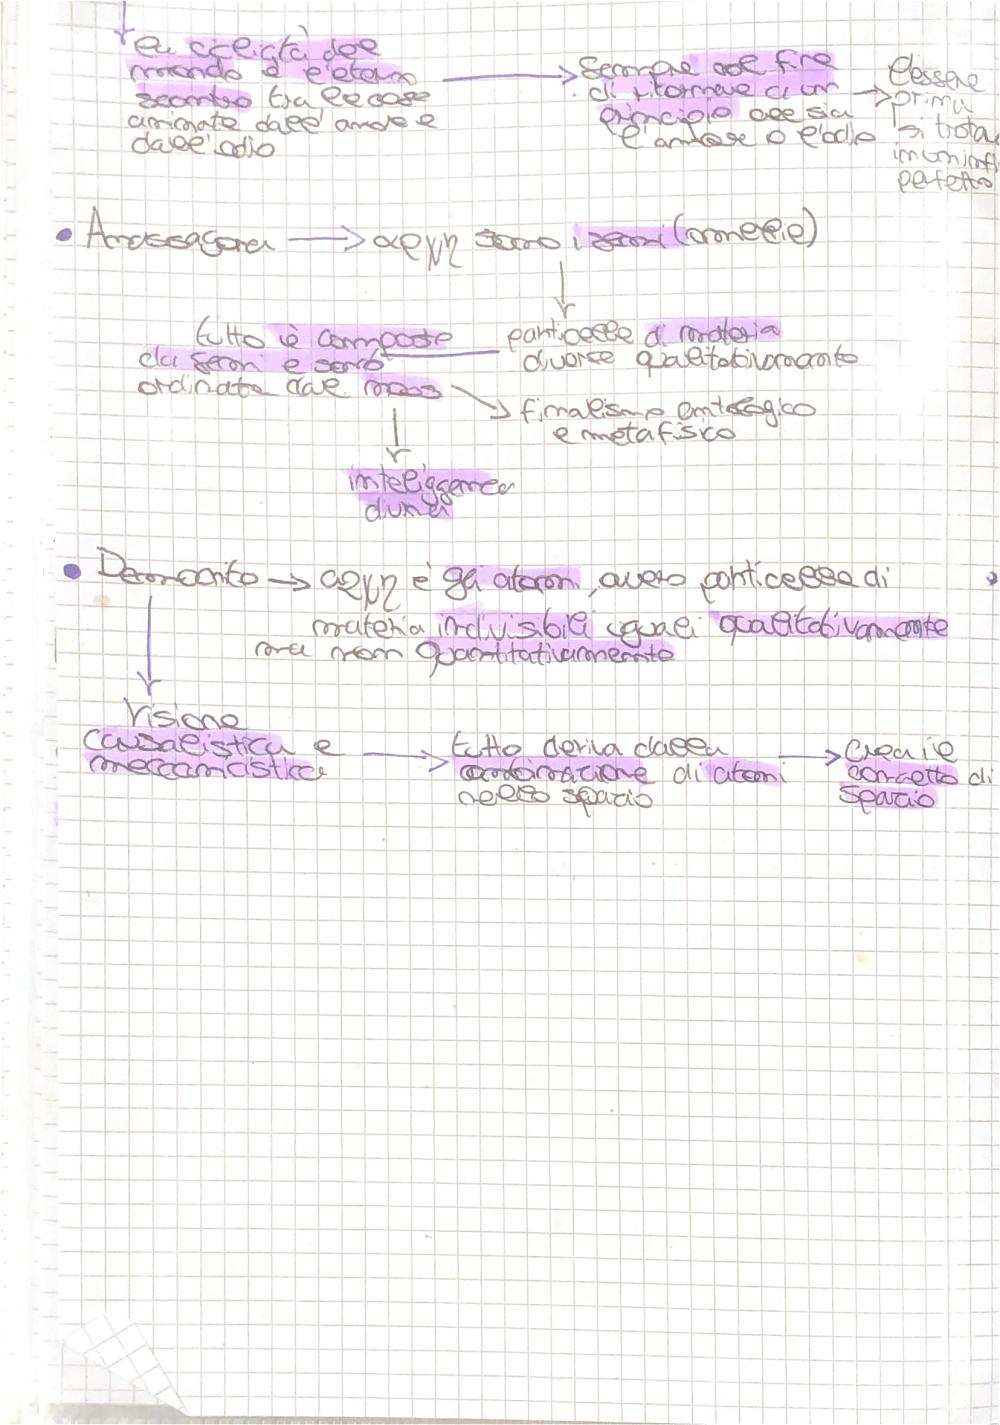 la ciclicità del
mondo è l'eterno
scontro tra le cose
animate dall'amore e
dall'odio
sempre al fine
di ritornare a un
principio che sia
l'amore o l'odio
l'essere
prima
si trova
in un inf
perfetto
• Anassagora → αρχη sono i semi (omeelie)
particelle di materia
diverse qualitativamente
tutto è composto
da semi e sono
ordinate dal nous
finalismo ontologico
e metafisico
intelligenza
divina
• Democrito → αρχη è gli atomi, ovvero particelle di
materia indivisibili uguali qualitativamente
ma non quantitativamente
Visione
causalistica e
meccanicistica
tutto deriva dalla
combinazione di atomi
nello spazio
crea il
concetto di
spazio